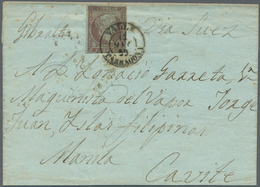 Gibraltar Via Suez
VALLS
TARRAGONA
A D. Ignacio Garreta, 1º
Maquinista del Vapor Jorge
Juan, Islas filipinas
Manila
Cavite